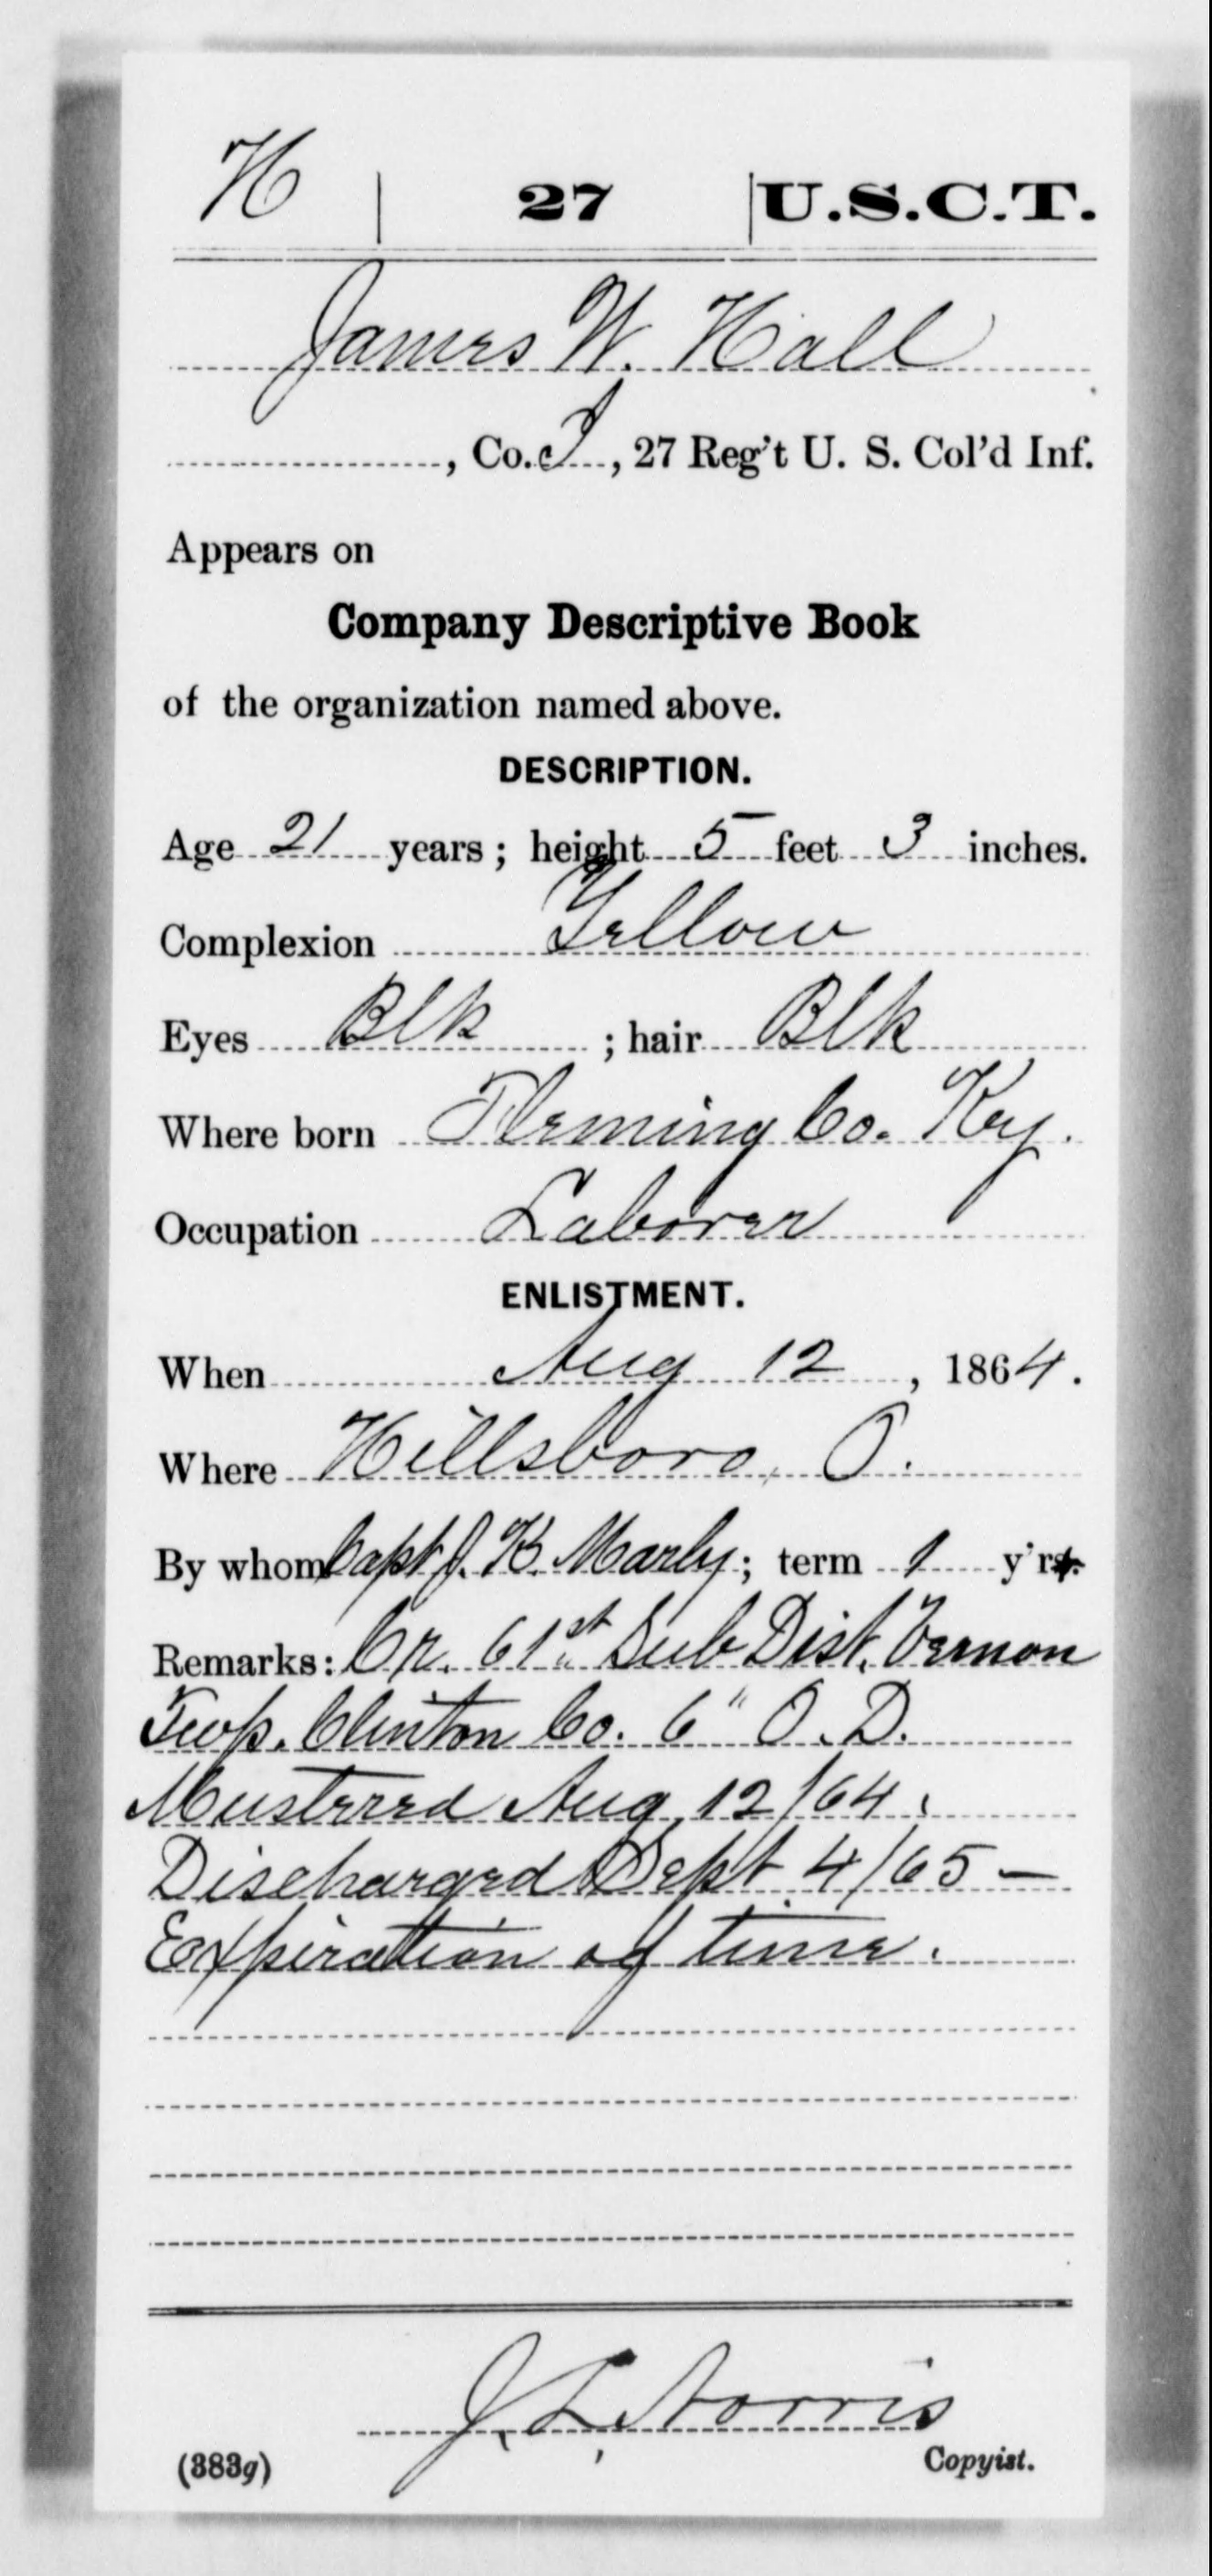 H | 27 | U.S.C.T.
James W. Hall
, Co. I, 27 Reg't U. S. Col'd Inf.
Appears on
Company Descriptive Book
of the organization named above.
DESCRIPTION.
Age 21 years; height 5 feet 3 inches.
Complexion Yellow
Eyes Blk; hair Blk
Where born Fleming Co. Ky.
Occupation Laborer
ENLISTMENT.
When Aug 12, 1864.
Where Hillsboro, O.
By whom Capt J. K. Marly; term 1 y'rs.
Remarks: Cr. 61st Sub Dist. Vernon
Twp. Clinton Co. 6" O. D.
Mustered Aug 12/64.
Discharged Sept. 4/65 —
Expiration of time.
J. L. Norris
(383g) Copyist.